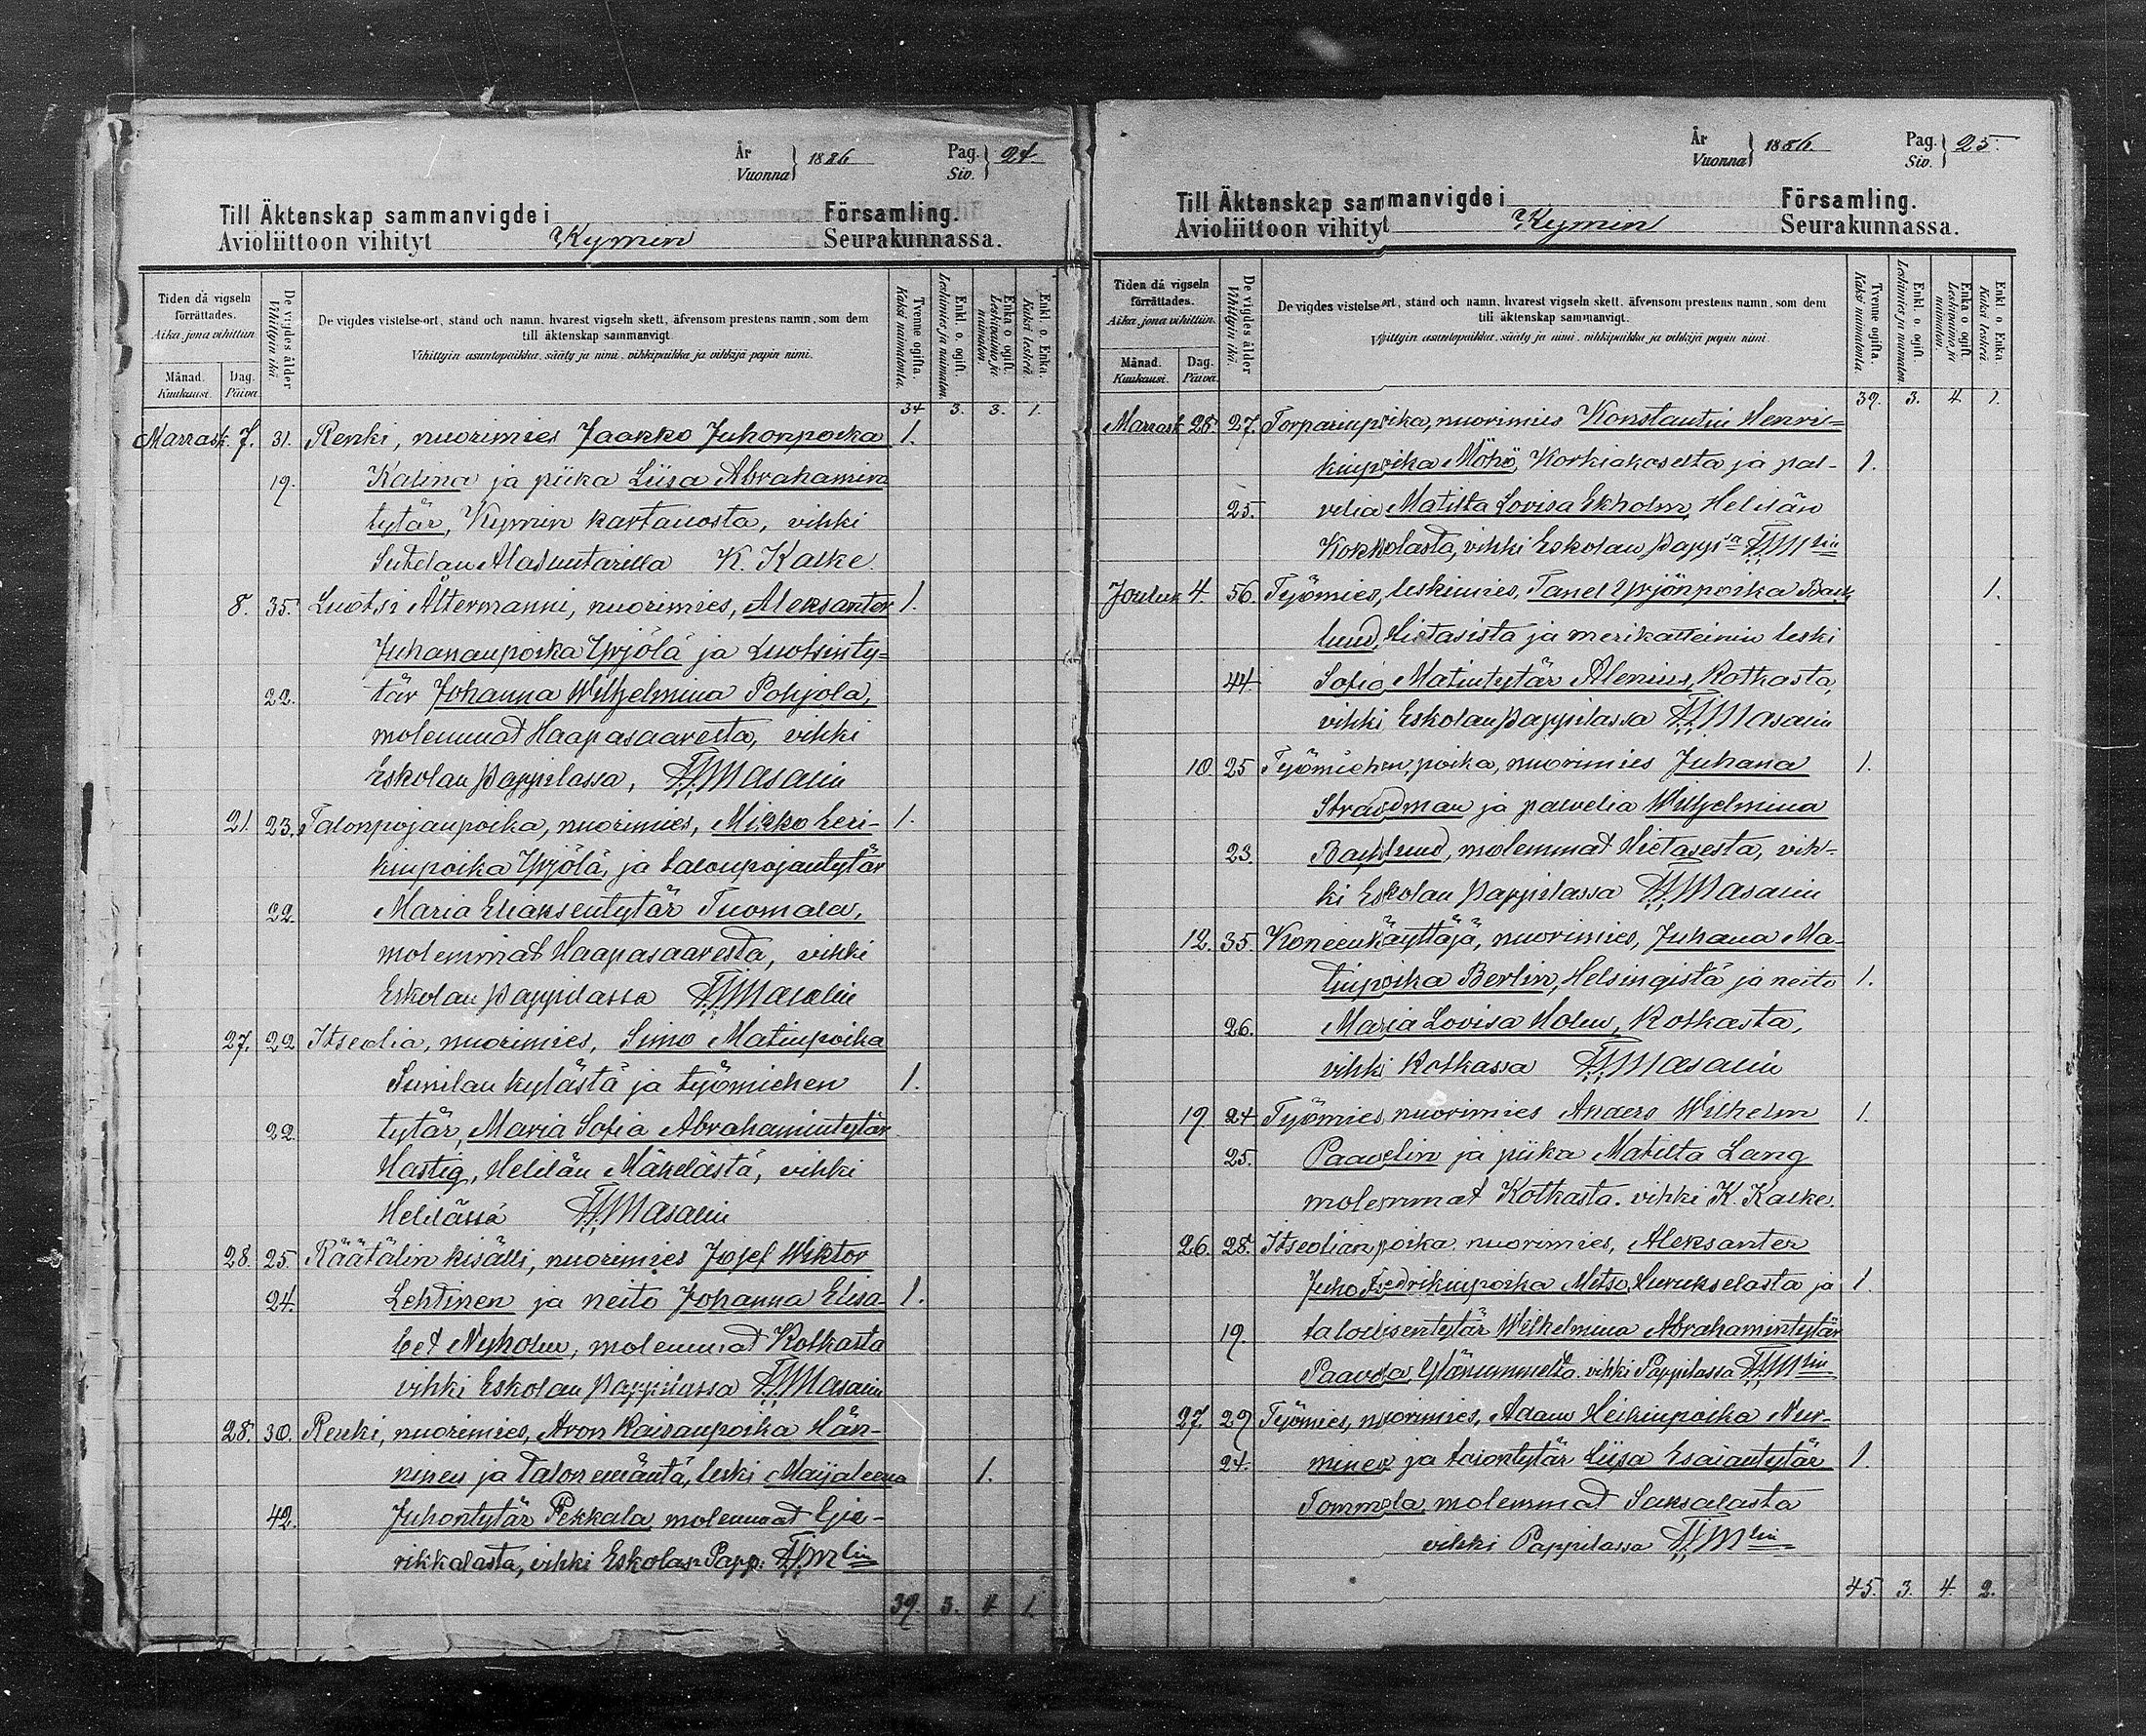 År
Vuonna } 1886
Pag.
Siv. } 24.
Till Äktenskap sammanvigde i Församling.
Avioliittoon vihityt Kymin Seurakunnassa.
Tiden då vigseln förrättades.
Aika, jona vihittiin.
Månad. Kuukausi.
Dag. Päivä.
De vigdes ålder
Vihittyin ikä.
De vigdes vistelse-ort, stånd och namn, hvarest vigseln skett, äfvensom prestens namn, som dem
till äktenskap sammanvigt.
Vihittyin asuntopaikka, sääty ja nimi, vihkipaikka ja vihkijä papin nimi.
Tvenne ogifta.
Kaksi naimatonta.
Enkl. o. ogift.
Leskimies ja naimaton.
Enka o. ogift.
Leskivaimo ja naimaton.
Enkl. o. Enka.
Kaksi leskeä.
34 3. 3. 1.
Marrask. 7. 31. Renki, nuorimies Jaakko Juhonpoika 1.
19. Kalina ja piika Liisa Abrahamin
tytär, Kymin kartanosta, vihki
Sutelan Alasuutarilla K. Kalke.
8. 35. Luotsi Ältermanni, nuorimies, Aleksanter 1.
Juhananpoika Yrjölä ja Luotsinty=
22. tär Johanna Wilhelmina Pohjola,
molemmat Haapasaaresta, vihki
Eskolan pappilassa, Masalin
21. 23. Talonpojanpoika, nuorimies, Mikko Eeri-
1.
kinpoika Yrjölä, ja talonpojantytär
22. Maria Eliaksentytär Tuomala,
molemmat Haapasaaresta, vihki
Eskolan pappilassa Masalin
27. 22 Itseolia, nuorimies, Simo Matinpoika
Sunilan kylästä ja työmiehen 1.
22. tytär, Maria Sofia Abrahamintytär
Hastig, Helilän Mäkelästä, vihki
Helilässä Masalin
28. 25. Räätälin kisälli, nuorimies Josef Wiktor
24. Lehtinen ja neito Johanna Elisa- 1.
bet Nyholm, molemmat Kotkasta
vihki Eskolan pappilassa Masalin
28. 30. Renki, nuorimies, Aron Kaisanpoika Hän-
ninen ja talonemäntä, leski Maijaleena 1.
42. Juhontytär Pekkala molemmat
rikkalasta, vihki Eskolan Papp.
39. 3. 4 1.
År
Vuonna } 1886.
Pag.
Siv. } 25.
Till Äktenskap sammanvigde i Församling.
Avioliittoon vihityt Kymin Seurakunnassa.
Tiden då vigseln förrättades.
Aika, jona vihittiin.
Månad. Kuukausi.
Dag. Päivä.
De vigdes ålder
Vihittyin ikä.
De vigdes vistelse-ort, stånd och namn, hvarest vigseln skett, äfvensom prestens namn, som dem
till äktenskap sammanvigt.
Vihittyin asuntopaikka, sääty ja nimi, vihkipaikka ja vihkijä papin nimi.
Tvenne ogifta.
Kaksi naimatonta.
Enkl. o. ogift.
Leskimies ja naimaton.
Enka o. ogift.
Leskivaimo ja naimaton.
Enkl. o. Enka.
Kaksi leskeä.
39. 3. 4 1.
Marrask 28. 27. Torparinpoika, nuorimies Konstantin Henri=
kinpoika Mökö, Korkiakoselta ja pal- 1.
25. velia Matilta Lovisa Ekholm, Helilän
Kokkolasta, vihki Eskolan
Jouluk 4. 56. Työmies, leskimies, Tanel Yrjönpoika Back 1.
lund, Hietasista ja merikatteinin leski
44. Sofia Matintytär Alenius, Kotkasta,
vihki Eskolan pappilassa Masalin
10 25 Työmiehen poika, nuorimies Juhana 1.
Strandman ja palvelia Wilhelmina
23. Backlund, molemmat Hietasesta, vih-
ki Eskolan pappilassa Masalin
12. 35. Koneenkäyttäjä, nuorimies, Juhana Ma-
tinpoika Berlin, Helsingistä ja neito 1.
26. Maria Lovisa Holm, Kotkasta,
vihki Kotkassa Masalin
19. 24 Työmies, nuorimies Anders Wilhelm 1.
25. Paavelin ja piika Matilta Lang
molemmat Kotkasta. vihki K. Kalke.
26. 28. Itseolian poika nuorimies, Aleksanter
Juho Fredrikinpoika Metso, Hurukselasta ja 1
19. talollisentytär Wilhelmina Abrahamintytär
Paavola vihki Pappilassa
27. 29 Työmies, nuorimies, Adam Heikinpoika Nur-
24. minen ja talontytär Liisa Esaiantytär 1.
Tommola, molemmat Saksalasta
vihki Pappilassa
45. 3. 4. 2.